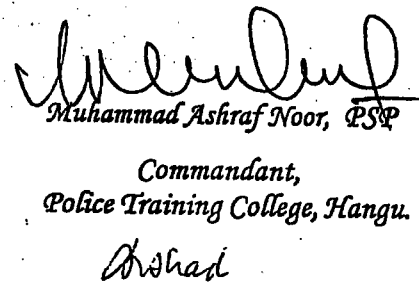 Muhammad Ashraf Noor, PSP
Commandant,
Police Training College, Hangu.
Arshad